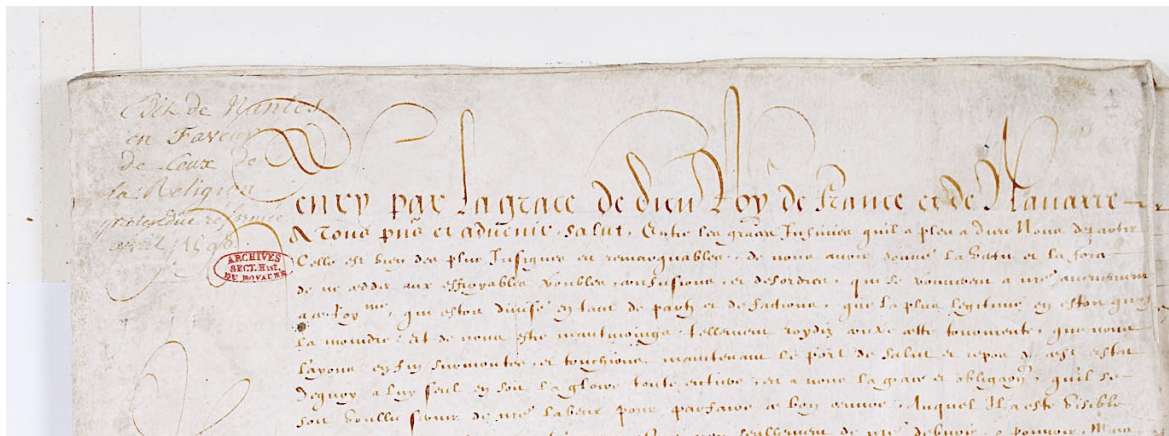 Edit de Nantes
en Faveur
de Ceux de
la Religion
pretendue réformée
avril 1598
ARCHIVES
SECT. HIST.
DU ROYAUME
Henry par la grace de dieu Roy de France et de Navarre
A tous pñs et advenir. salut. Entre les graces Infinies qu'il a pleu a dieu Nous departir
Celle est bien des plus Insignes et remarquables. de nous avoir donné la vertu et la force
de ne ceder aux effroyables troubles, confusions, et desordres, qui se trouverent a
a ce Roy me, qui estoit divisé en tant de partz et de factions, que la plus legitime en estoit quasi
la moindre, et de nous estre neantmoings tellement roydiz contre ceste tourmente, que nous
l'ayons enfin surmontée, et touchions maintenant le port de salut et repos de cest estat
Dequoy a luy seul en soit la gloire toute entiere, et a nous la grace et qu'il se
soit voullu servir de labeur pour parfaire ce bon œuvre, Auquel Il a esté visible
seullement de debvoir pouvoir